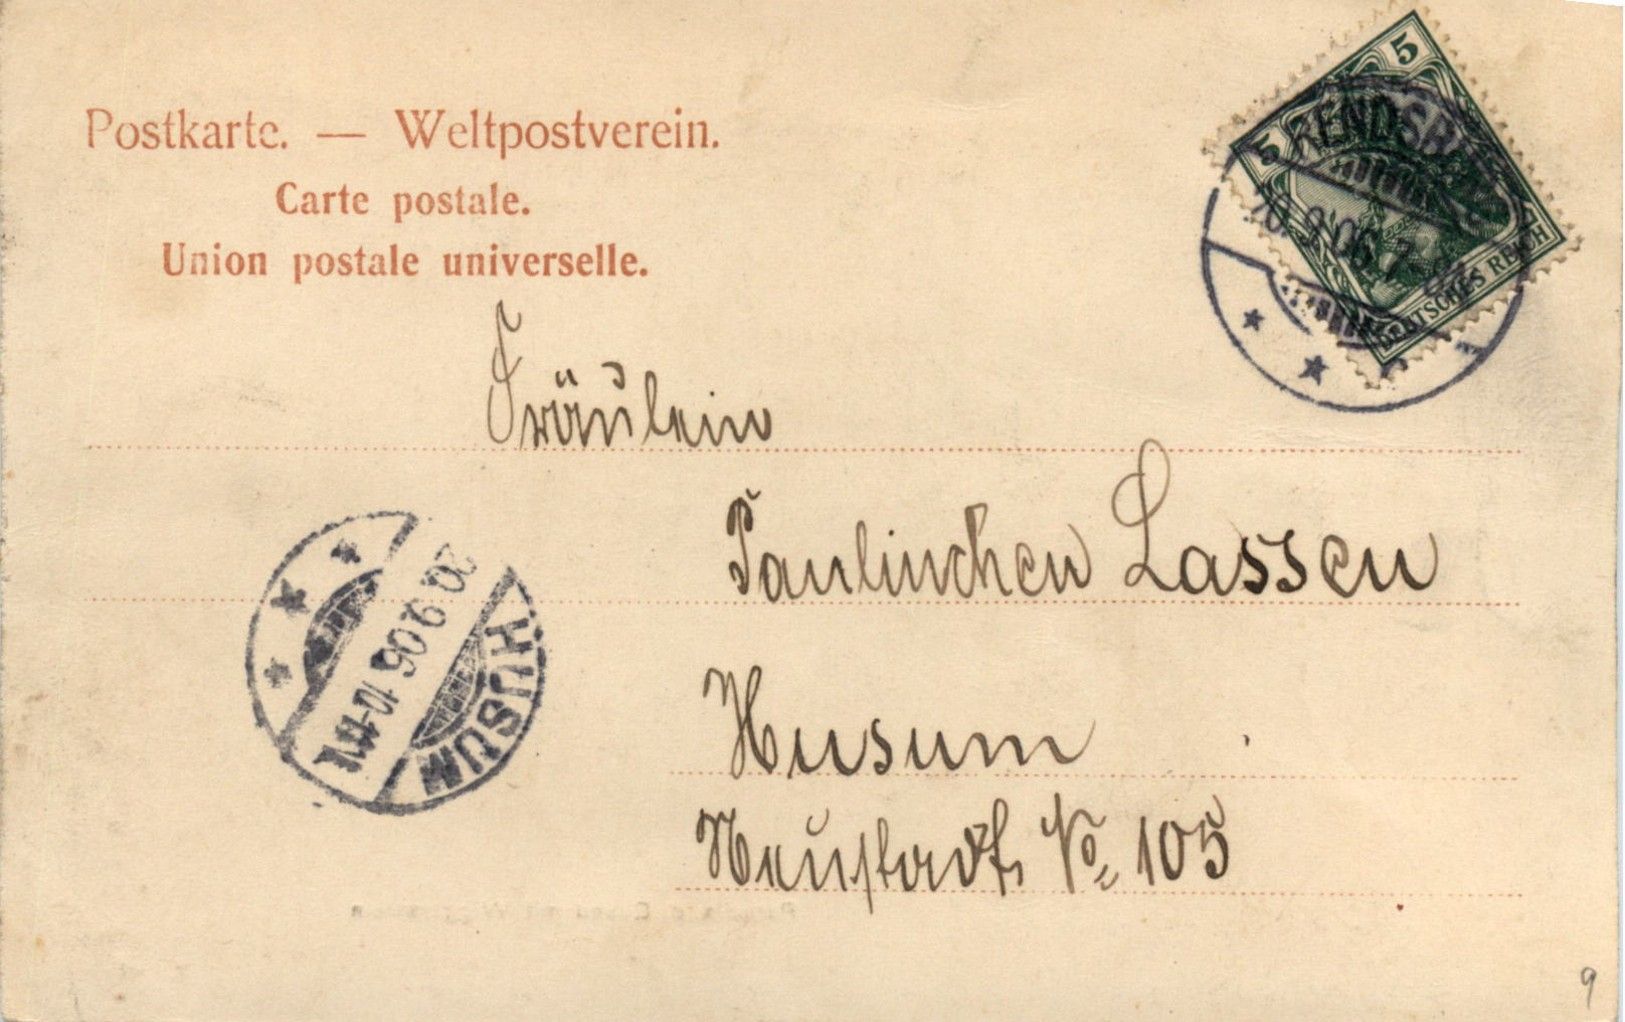 Postkarte. — Weltpostverein.
Carte postale.
Union postale universelle.
5
5
DEUTSCHES REICH
RENDSBURG
20.9.06. 7-8V
Fräulein
Paulinchen Lassen
Husum
Neustadt, No 105
HUSUM
20.9.06 10-11V
9